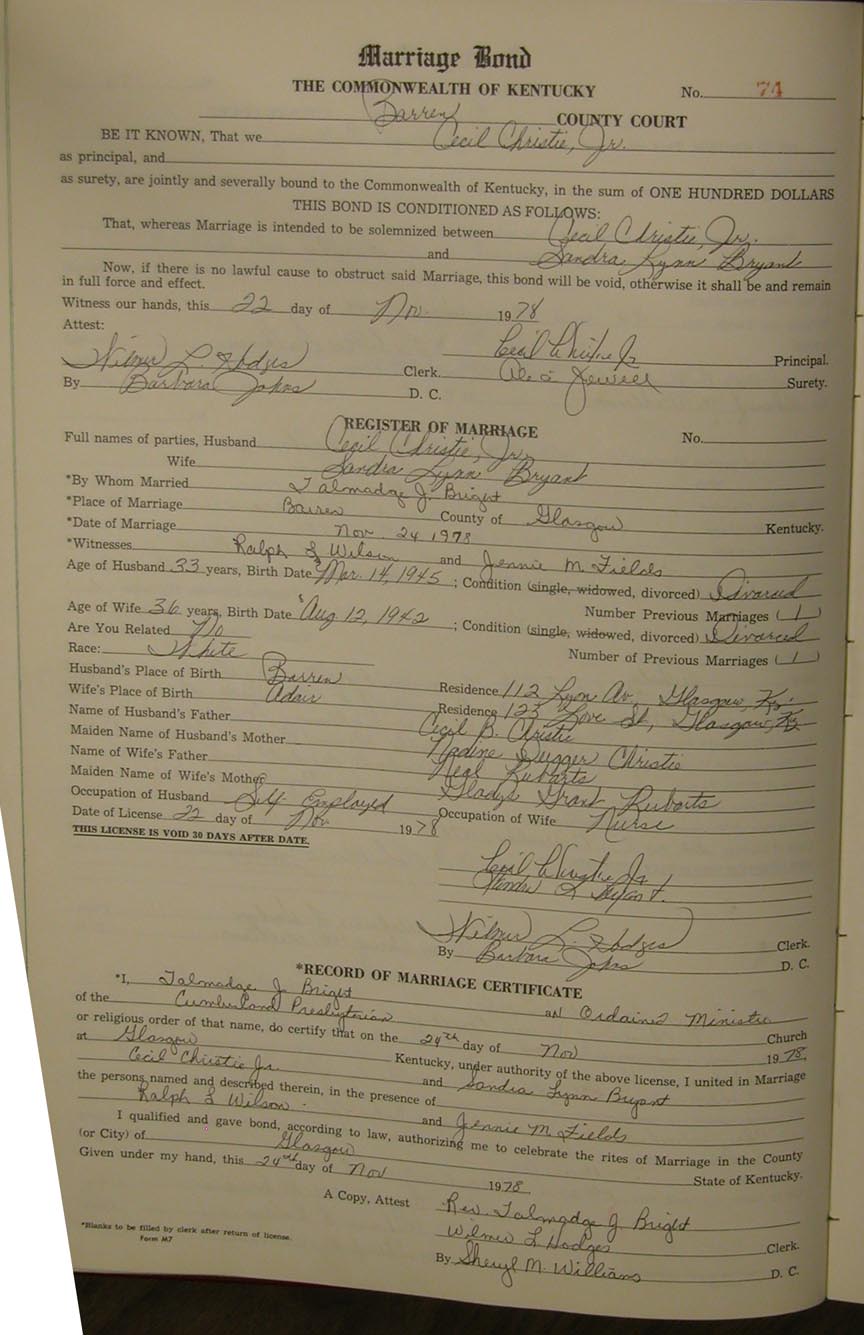 Marriage Bond
THE COMMONWEALTH OF KENTUCKY No. 74
Barren COUNTY COURT
BE IT KNOWN, That we Cecil Christie, Jr.
as principal, and
as surety, are jointly and severally bound to the Commonwealth of Kentucky, in the sum of ONE HUNDRED DOLLARS
THIS BOND IS CONDITIONED AS FOLLOWS:
That, whereas Marriage is intended to be solemnized between Cecil Christie, Jr.
and Sandra Lynn Bryant
Now, if there is no lawful cause to obstruct said Marriage, this bond will be void, otherwise it shall be and remain
in full force and effect.
Witness our hands, this 22 day of Nov. 1978
Attest:
Cecil Christie Jr Principal.
Wilmer L. Hodges Clerk. Jewell Surety.
By Barbara Johns D. C.
REGISTER OF MARRIAGE No.
Full names of parties, Husband Cecil Christie, Jr.
Wife Sandra Lynn Bryant
*By Whom Married Talmadge J. Bright
*Place of Marriage Barren County of Glasgow Kentucky.
*Date of Marriage Nov. 24 1978
*Witnesses Ralph L Wilson and Jennie M. Fields
Age of Husband 33 years, Birth Date Mar. 14, 1945; Condition (single, widowed, divorced) Divorced
Number Previous Marriages (1)
Age of Wife 36 years, Birth Date Aug 12, 1942; Condition (single, widowed, divorced) Divorced
Are You Related No
Number of Previous Marriages (1)
Race: White
Husband's Place of Birth Barren Residence 112 Lyon Av., Glasgow, Ky.
Wife's Place of Birth Adair Residence 123 Love St., Glasgow, Ky
Name of Husband's Father Cecil B. Christie
Maiden Name of Husband's Mother Nadine Dugger Christie
Name of Wife's Father Neal Rubarts
Maiden Name of Wife's Mother Gladys Grant Rubarts
Occupation of Husband Self Employed Occupation of Wife Nurse
Date of License 22 day of Nov 1978
THIS LICENSE IS VOID 30 DAYS AFTER DATE.
Cecil Christie Jr
Sandra L Bryant
Wilmer L. Hodges Clerk.
By Barbara Johns D. C.
*RECORD OF MARRIAGE CERTIFICATE
*I, Talmadge J. Bright an Ordained Minister
of the Cumberland Presbyterian Church
or religious order of that name, do certify that on the 24th day of Nov 1978,
at Glasgow Kentucky, under authority of the above license, I united in Marriage
Cecil Christie Jr. and Sandra Lynn Bryant
the persons named and described therein, in the presence of
Ralph L Wilson and Jennie M Fields
I qualified and gave bond, according to law, authorizing me to celebrate the rites of Marriage in the County
(or City) of Glasgow State of Kentucky.
Given under my hand, this 24th day of Nov 1978
A Copy, Attest Rev. Talmadge J Bright
Wilmer L Hodges Clerk.
By Sheryl M. Williams D. C.
*Blanks to be filled by clerk after return of license.
Form M7